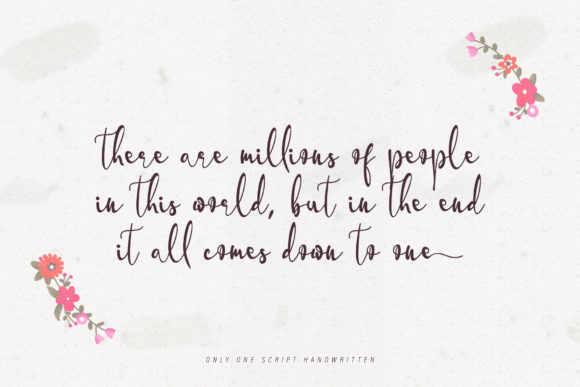 there are millions of people
in this world, but in the end
it all comes down to one
ONLY ONE SCRIPT HANDWRITTEN